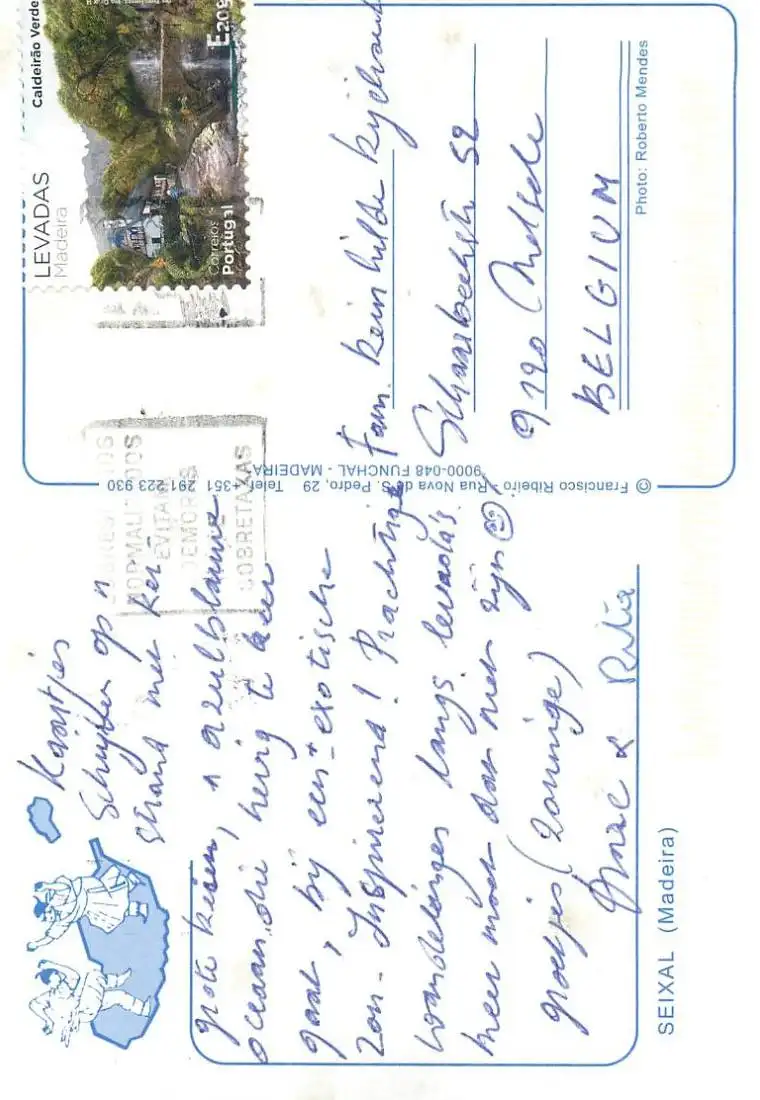 Kaartjes
schrijven op 'n
strand met
grote keien, 'n azuurblauwe
oceaan, die hevig te keer
gaat, bij een exotische
zon - Inspirerend! Prachtige
wandelingen langs levada's
meer moet dat niet zijn
groetjes (zonnige)
& Rita
SEIXAL (Madeira)
© Francisco Ribeiro - Rua Nova de S. Pedro, 29, Telef. +351 291 223 930
9000-048 FUNCHAL - MADEIRA
LEVADAS
Madeira
Caldeirão Verde
Correios
Portugal
E20g
NORMALIZADOS
EVITAM
DEMORAS
SOBRETAXAS
Fam.
52
9120 Melsele
BELGIUM
Photo: Roberto Mendes